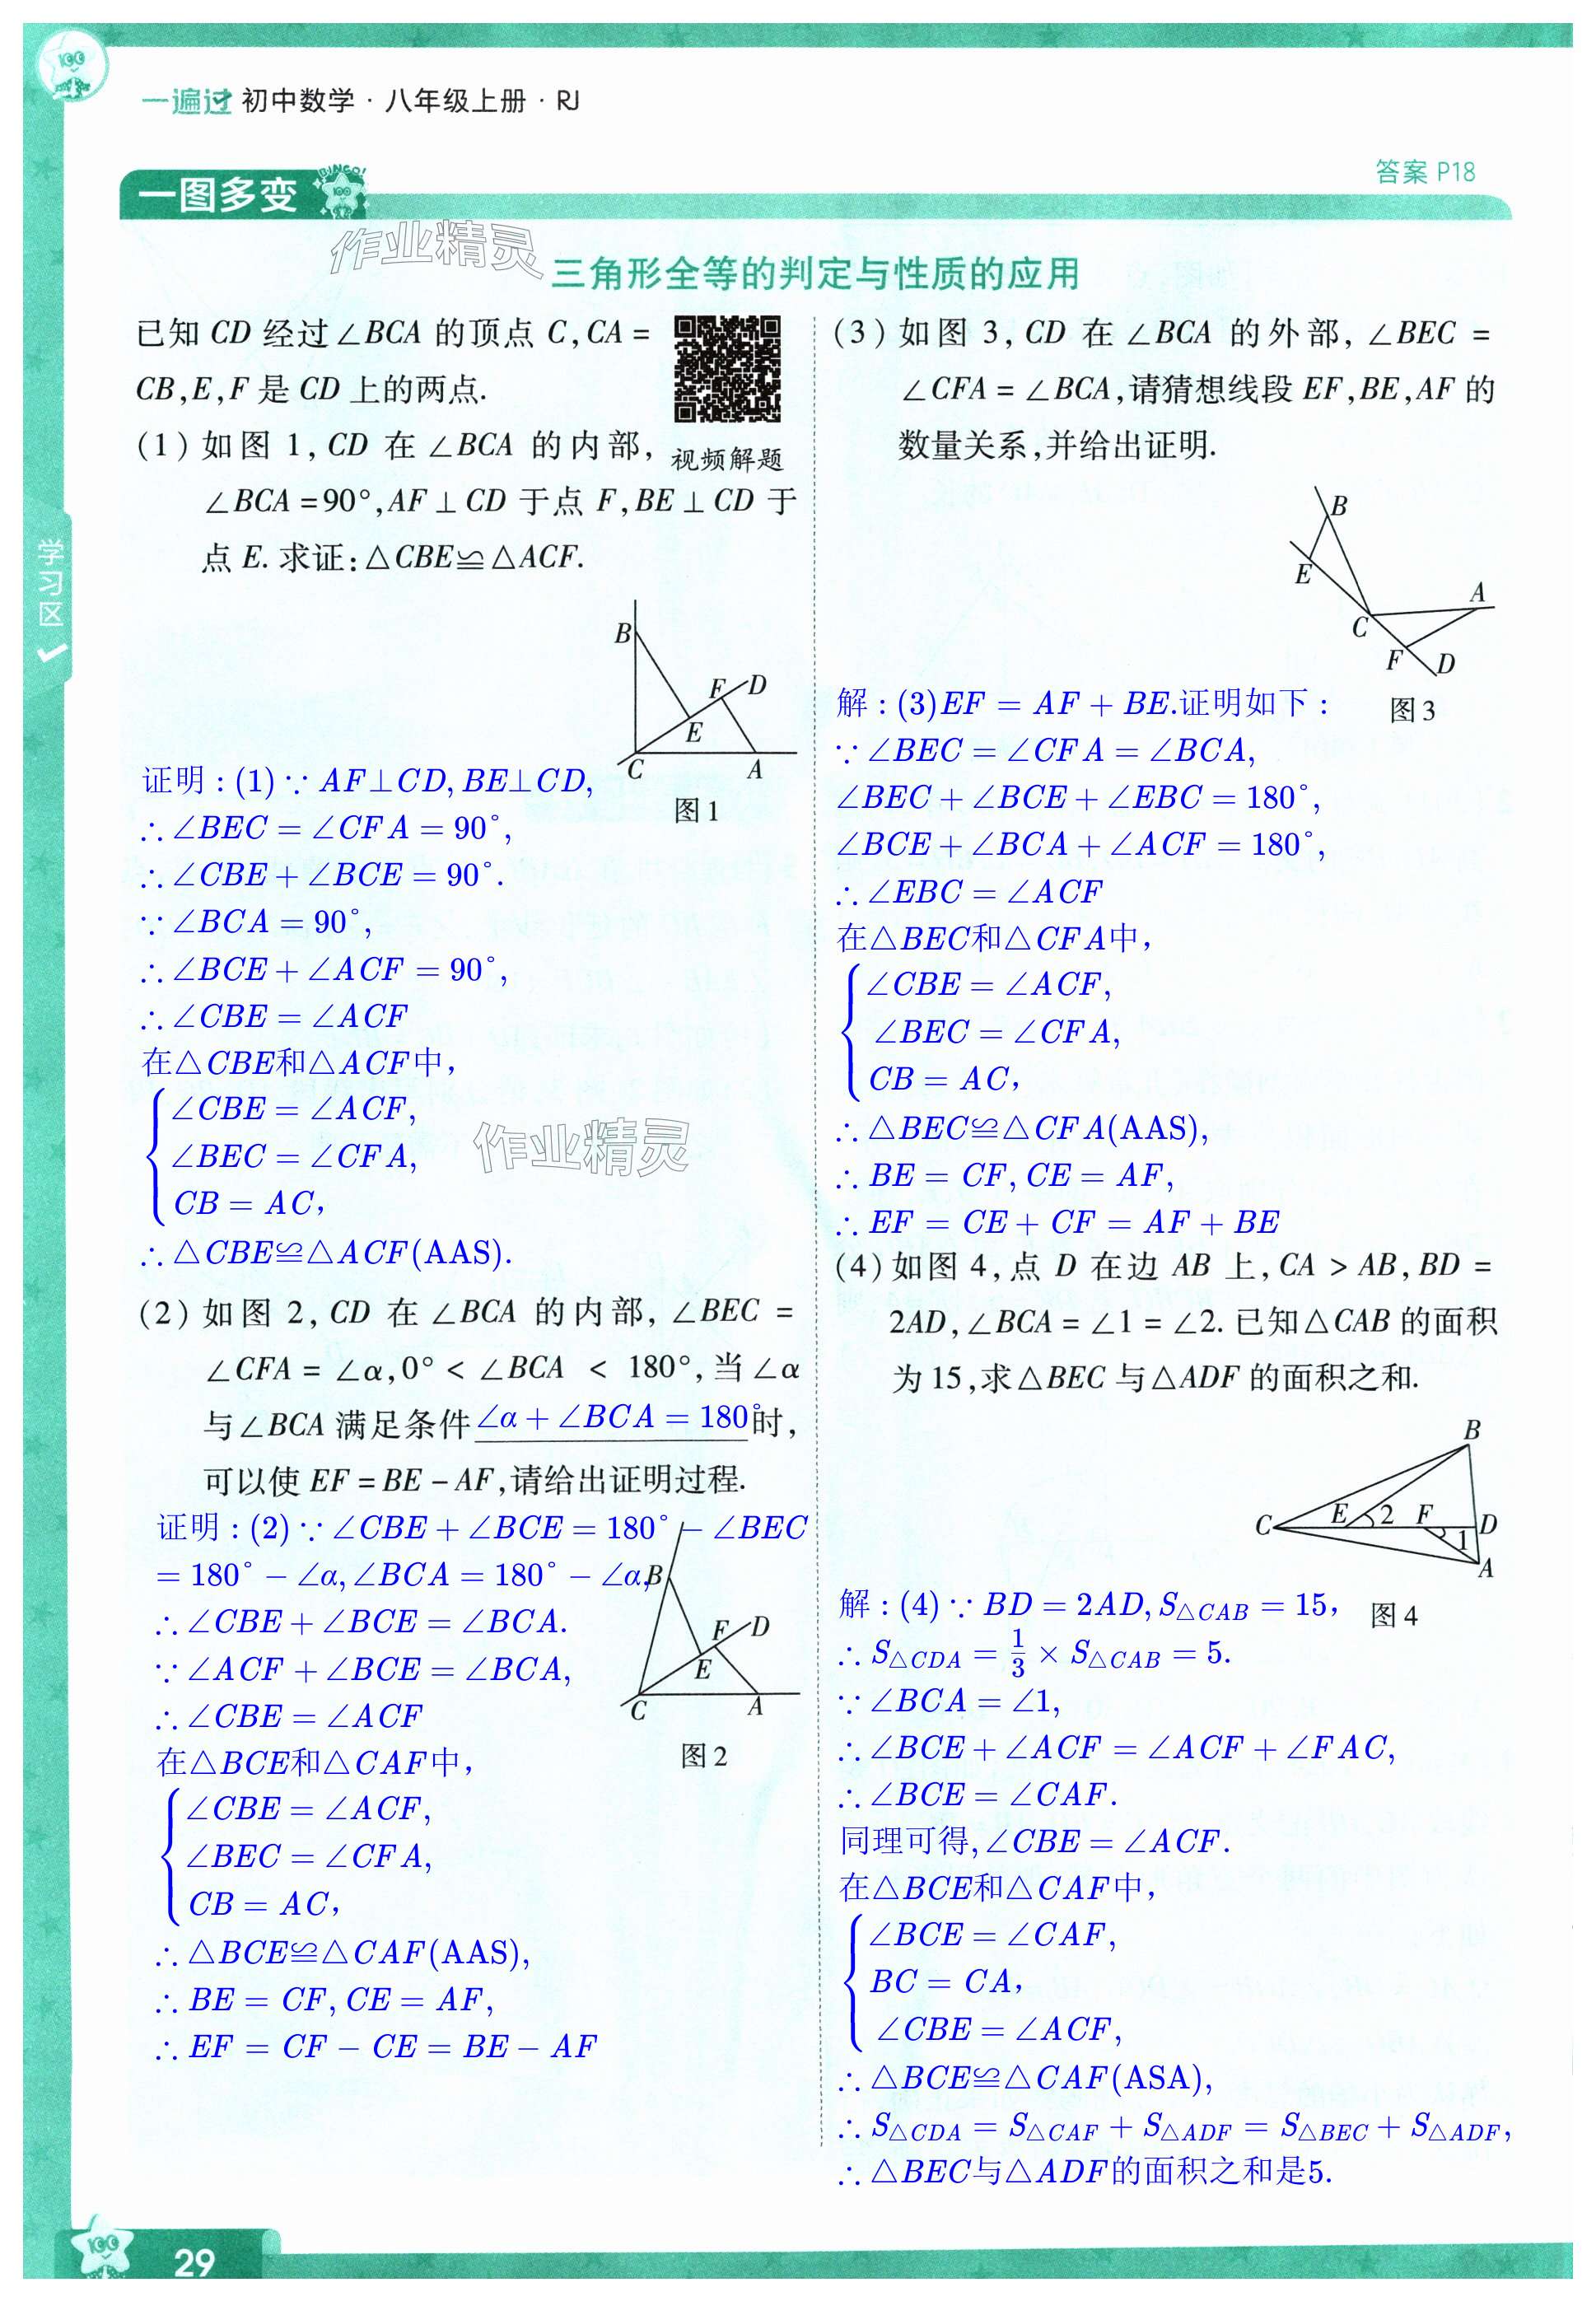 一遍过 初中数学 · 八年级上册 · RJ
答案 P18
一图多变 BINGO!
作业精灵
三角形全等的判定与性质的应用
已知 CD 经过∠BCA 的顶点 C,CA =
CB,E,F 是 CD 上的两点.
视频解题
(1) 如图 1, CD 在 ∠BCA 的内部,
∠BCA =90°,AF⊥CD 于点 F,BE⊥CD 于
点 E. 求证:△CBE≌△ACF.
B
F
D
E
C
A
图1
证明 : (1)∵ AF⊥CD, BE⊥CD,
∴ ∠BEC = ∠CFA = 90°,
∴ ∠CBE + ∠BCE = 90°.
∵ ∠BCA = 90°,
∴ ∠BCE + ∠ACF = 90°,
∴ ∠CBE = ∠ACF
在△CBE和△ACF中,
∠CBE = ∠ACF,
∠BEC = ∠CFA,
CB = AC,
∴ △CBE≌△ACF(AAS).
作业精灵
(2) 如图 2, CD 在 ∠BCA 的内部, ∠BEC =
∠CFA = ∠α,0° < ∠BCA < 180°,当∠α
与∠BCA 满足条件∠α + ∠BCA = 180°时,
可以使 EF = BE - AF,请给出证明过程.
证明 : (2)∵ ∠CBE + ∠BCE = 180° - ∠BEC
= 180° - ∠α, ∠BCA = 180° - ∠α,
∴ ∠CBE + ∠BCE = ∠BCA.
∵ ∠ACF + ∠BCE = ∠BCA,
∴ ∠CBE = ∠ACF
在△BCE和△CAF中,
∠CBE = ∠ACF,
∠BEC = ∠CFA,
CB = AC,
∴ △BCE≌△CAF(AAS),
∴ BE = CF, CE = AF,
∴ EF = CF - CE = BE - AF
B
F
D
E
C
A
图2
(3) 如图 3, CD 在 ∠BCA 的外部, ∠BEC =
∠CFA = ∠BCA,请猜想线段 EF,BE,AF 的
数量关系,并给出证明.
B
E
A
C
F
D
图3
解 : (3)EF = AF + BE.证明如下 :
∵ ∠BEC = ∠CFA = ∠BCA,
∠BEC + ∠BCE + ∠EBC = 180°,
∠BCE + ∠BCA + ∠ACF = 180°,
∴ ∠EBC = ∠ACF
在△BEC和△CFA中,
∠CBE = ∠ACF,
∠BEC = ∠CFA,
CB = AC,
∴ △BEC≌△CFA(AAS),
∴ BE = CF, CE = AF,
∴ EF = CE + CF = AF + BE
(4) 如图 4,点 D 在边 AB 上,CA > AB,BD =
2AD,∠BCA = ∠1 = ∠2. 已知△CAB 的面积
为 15,求△BEC 与△ADF 的面积之和.
B
C
E
2
F
D
1
A
图4
解 : (4)∵ BD = 2AD, S△CAB = 15,
∴ S△CDA = 1/3 × S△CAB = 5.
∵ ∠BCA = ∠1,
∴ ∠BCE + ∠ACF = ∠ACF + ∠FAC,
∴ ∠BCE = ∠CAF.
同理可得, ∠CBE = ∠ACF.
在△BCE和△CAF中,
∠BCE = ∠CAF,
BC = CA,
∠CBE = ∠ACF,
∴ △BCE≌△CAF(ASA),
∴ S△CDA = S△CAF + S△ADF = S△BEC + S△ADF,
∴ △BEC与△ADF的面积之和是5.
学习区
29